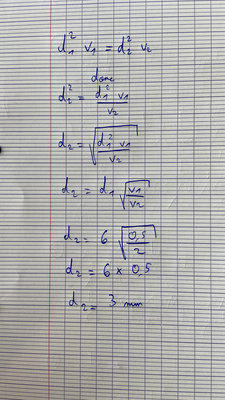 d₁² v₁ = d₂² v₂
donc
d₂² = d₁² v₁ / v₂
d₂ = √(d₁² v₁ / v₂)
d₂ = d₁ √(v₁ / v₂)
d₂ = 6 √(0,5 / 2)
d₂ = 6 × 0,5
d₂ = 3 mm